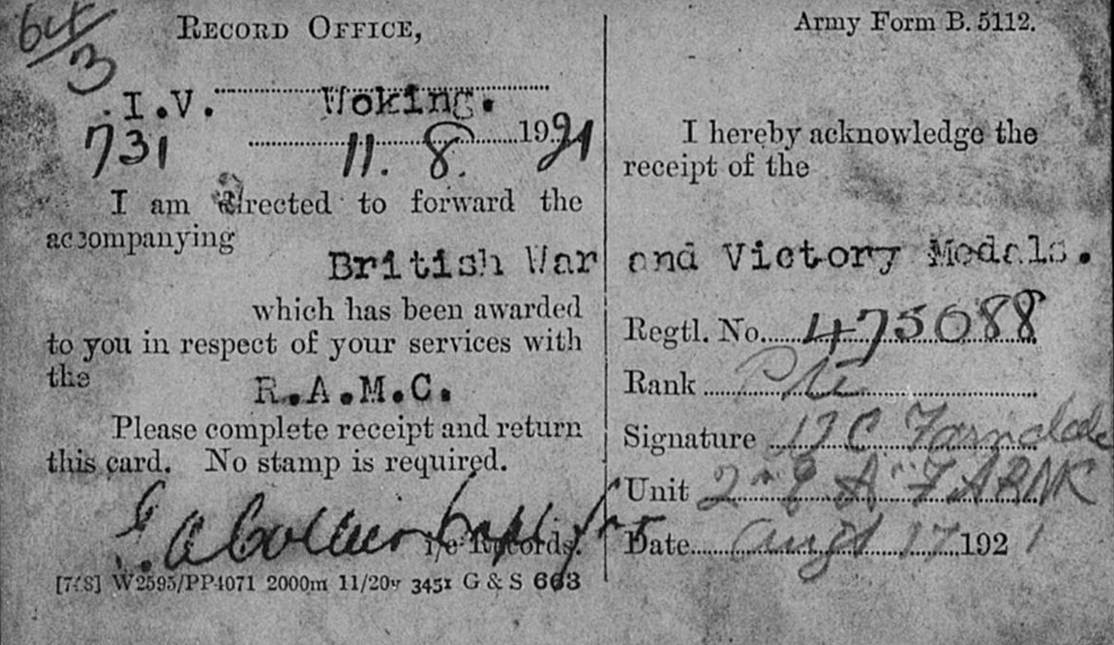 64/3
RECORD OFFICE,
I.V. Woking.
731 11. 8. 1921
I am directed to forward the
accompanying
British War
which has been awarded
to you in respect of your services with
the
R.A.M.C.
Please complete receipt and return
this card. No stamp is required.
i/c Records.
W2595/PP4071 2000m 11/20 3451 G & S 663
Army Form B. 5112.
I hereby acknowledge the
receipt of the
and Victory Medals.
Regtl. No. 475088
Rank Pte
Signature C Farndale
Unit
Date Augt 17 1921